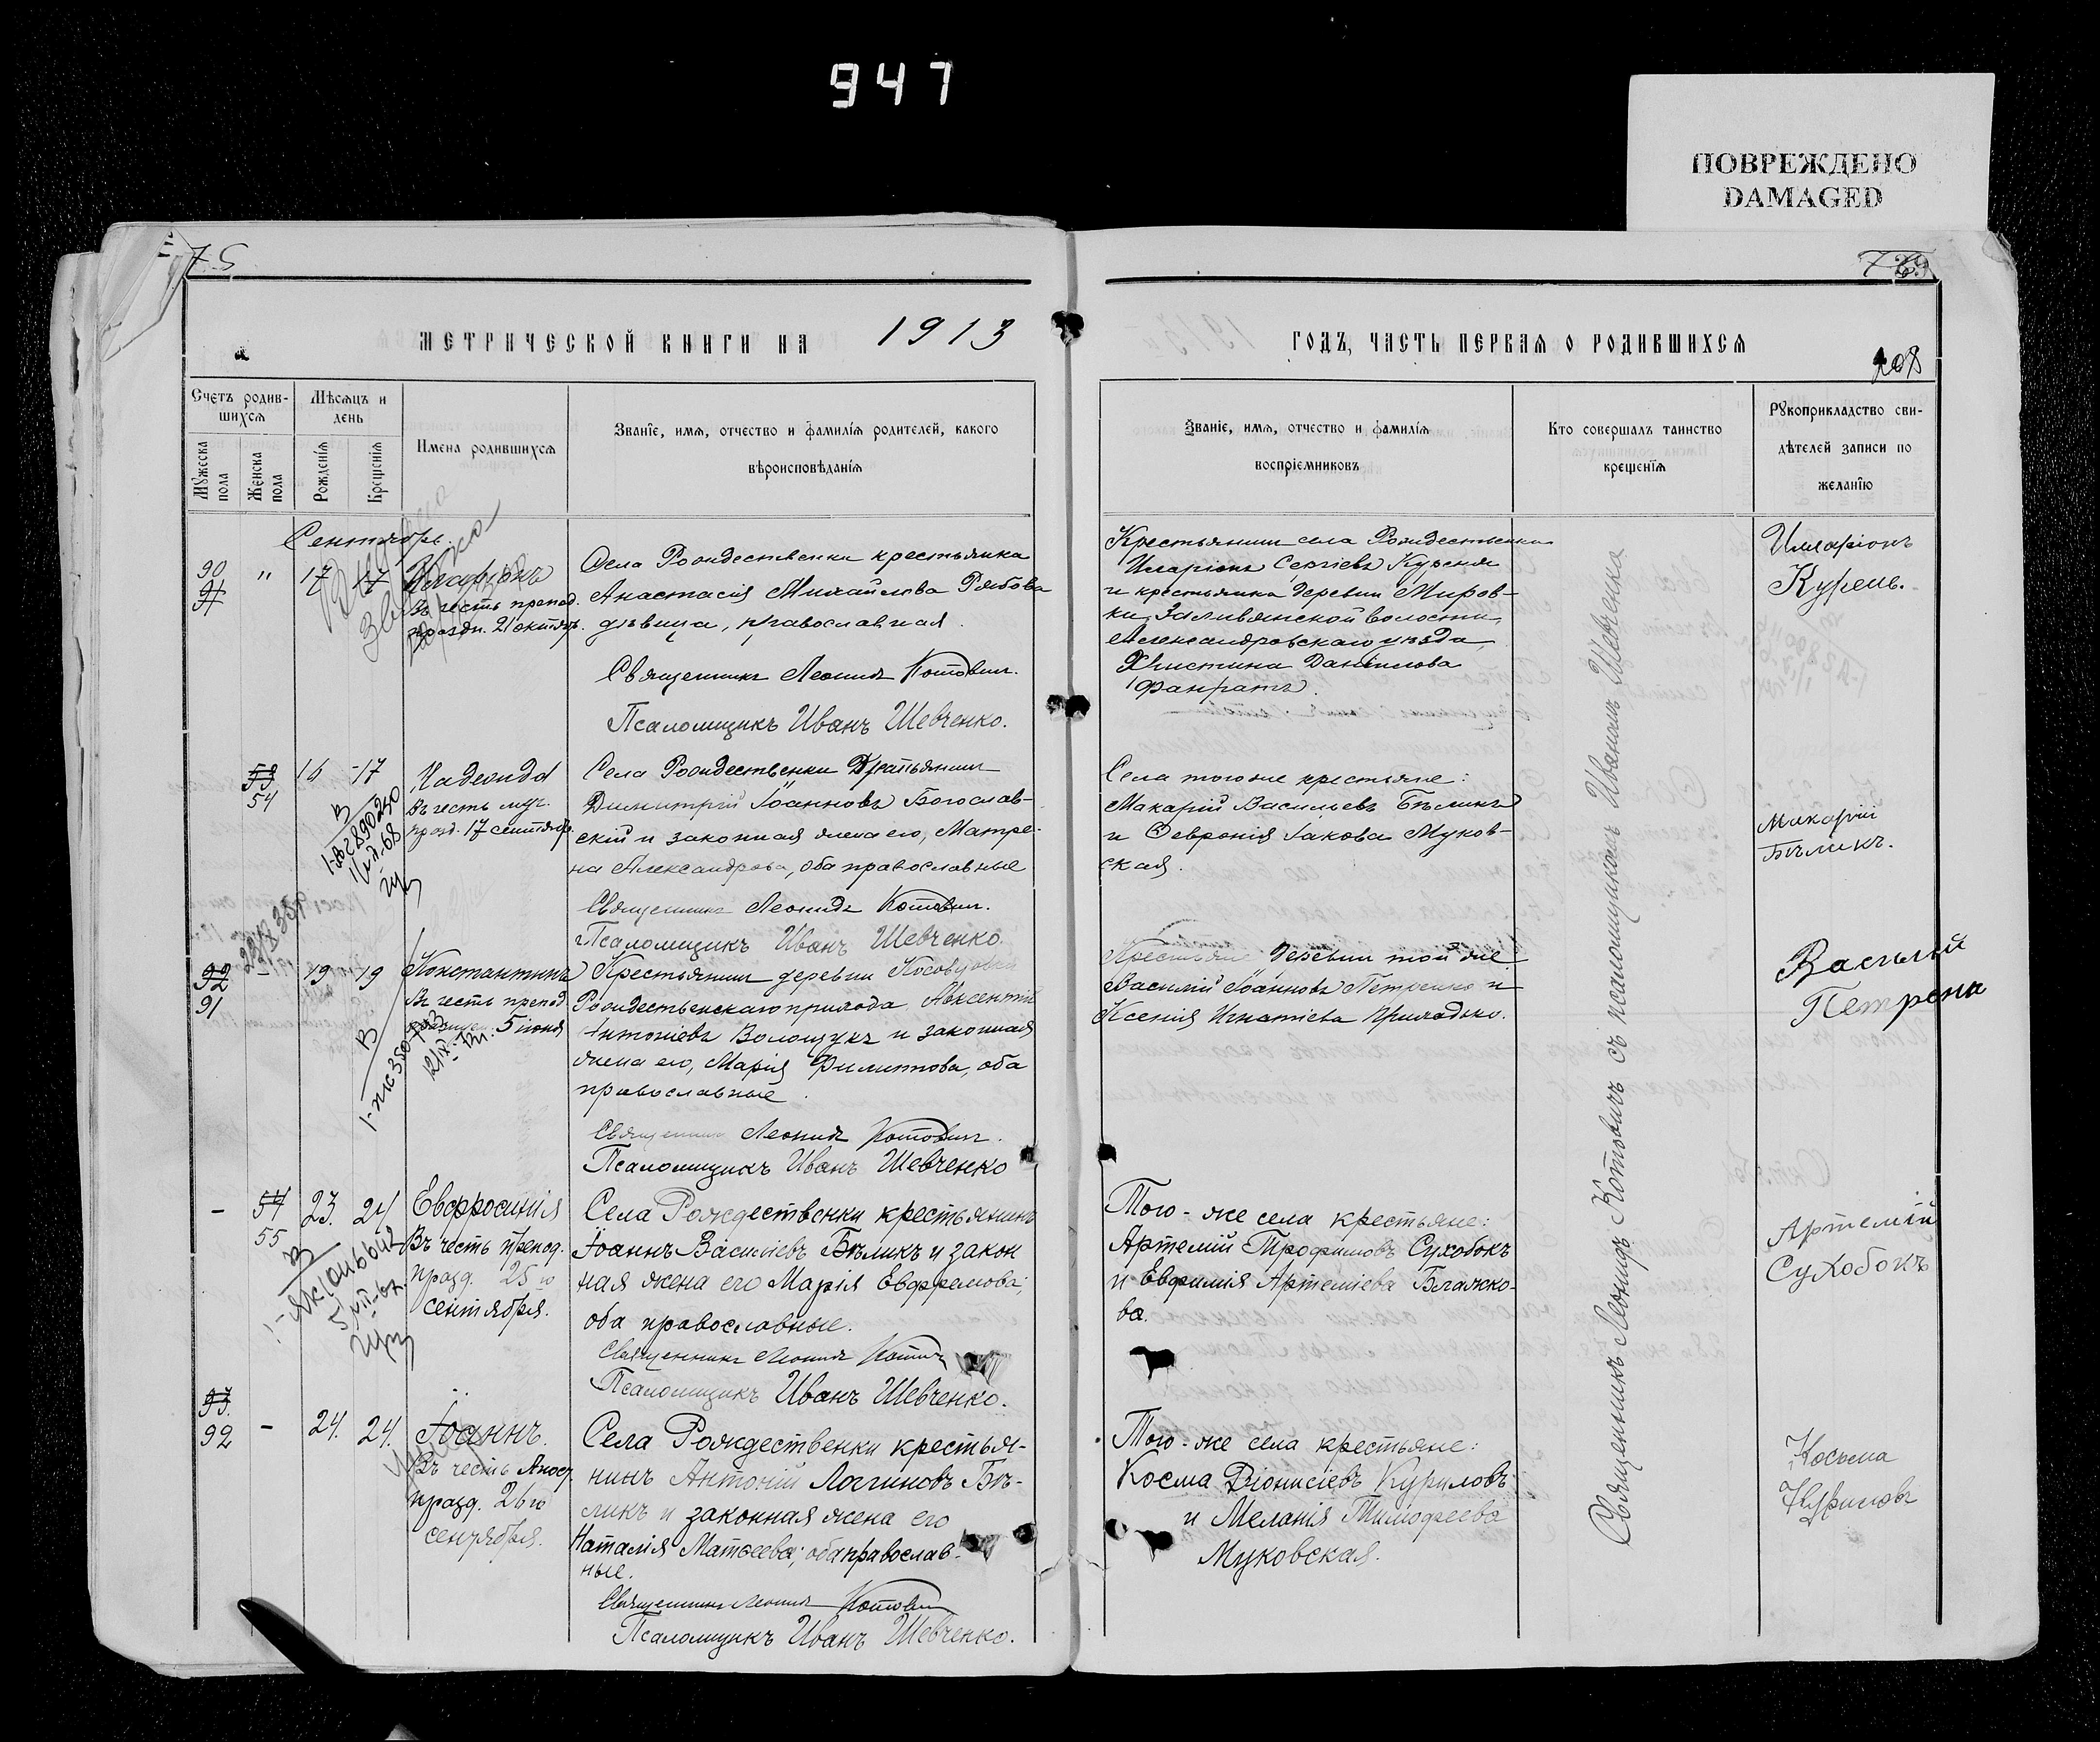 947
ПОВРЕЖДЕНО
DAMAGED
75
729
МЕТРИЧЕСКОЙ КНИГИ НА 1913
ГОДЪ, ЧАСТЬ ПЕРВАЯ О РОДИВШИХСЯ
208
Счетъ родив-
шихся
Мужеска
пола
Женска
пола
Мѣсяцъ и
день
Рожденія
Крещенія
Имена родившихся
Званіе, имя, отчество и фамилія родителей, какого
вѣроисповѣданія
Званіе, имя, отчество и фамилія
воспріемниковъ
Кто совершалъ таинство
крещенія
Рукоприкладство сви-
дѣтелей записи по
желанію
Сентябрь.
90
91
" 17 17
Иларіонъ
въ честь препод.
праздн. 21 октяб.
Села Рождественки крестьянка
Анастасія Михайлова Рябова
дѣвица, православная.
Священникъ Леонидъ Котович.
Псаломщикъ Иванъ Шевченко.
Крестьянин села Рождественки
Иларіонъ Сергіевъ Курень
и крестьянка деревни Миров-
ки, Заливянской волости,
Александровскаго уѣзда,
Христина Даніилова
Фанратъ.
Илларіонъ
Курень.
53
54
16 -17
Надежда
въ честь муч.
празд. 17 сентябр.
Села Рождественки Крестьянин
Димитрій Іоанновъ Богослав-
скій и законная жена его, Матре-
на Александрова, оба православные
Священникъ Леонидъ Котович.
Псаломщикъ Иванъ Шевченко.
Села того же крестьяне:
Макарій Васильевъ Бѣликъ
и Февронія Іакова Муков-
ская.
Макарій
Бѣликъ.
92
91
- 19 19
Константинъ
въ честь препод.
5 іюня
Крестьянин деревни
Рождественскаго прихода Авксентій
Антоніевъ Волощукъ и законная
жена его, Марія Филиппова, оба
православные.
Священник Леонидъ Котович.
Псаломщикъ Иванъ Шевченко
Крестьян деревни той же
Василій Іоанновъ Петренко и
Ксенія Игнатіева Приходько.
Василій
Петренк
- 54
55
23. 24
Евфросинія
Въ честь препод.
празд. 25го
сентября.
Села Рождественки крестьянинъ
Іоаннъ Василіевъ Бѣликъ и закон
ная жена его Марія Евфремова;
оба православные.
Священникъ Леонидъ Котович
Псаломщикъ Иванъ Шевченко.
Того-же села крестьяне:
Артемій Трофимовъ Сухобокъ
и Евфимія Артеміева Блажко-
ва.
Артемій
Сухобокъ
93.
92
- 24. 24.
Іоаннъ.
Въ честь Апост.
празд. 26го
сентября.
Села Рождественки крестья-
нинъ Антоній Логиновъ Бѣ-
ликъ и законная жена его
Наталія Матѳеева; оба православ-
ные.
Священникъ Леонидъ Котович
Псаломщикъ Иванъ Шевченко.
Того-же села крестьяне:
Косма Діонисіевъ Куриловъ
и Меланія Тимофеева
Муковская.
Косьма
Куриловъ
Священникъ Леонидъ Котовичъ съ псаломщикомъ Иваномъ Шевченко